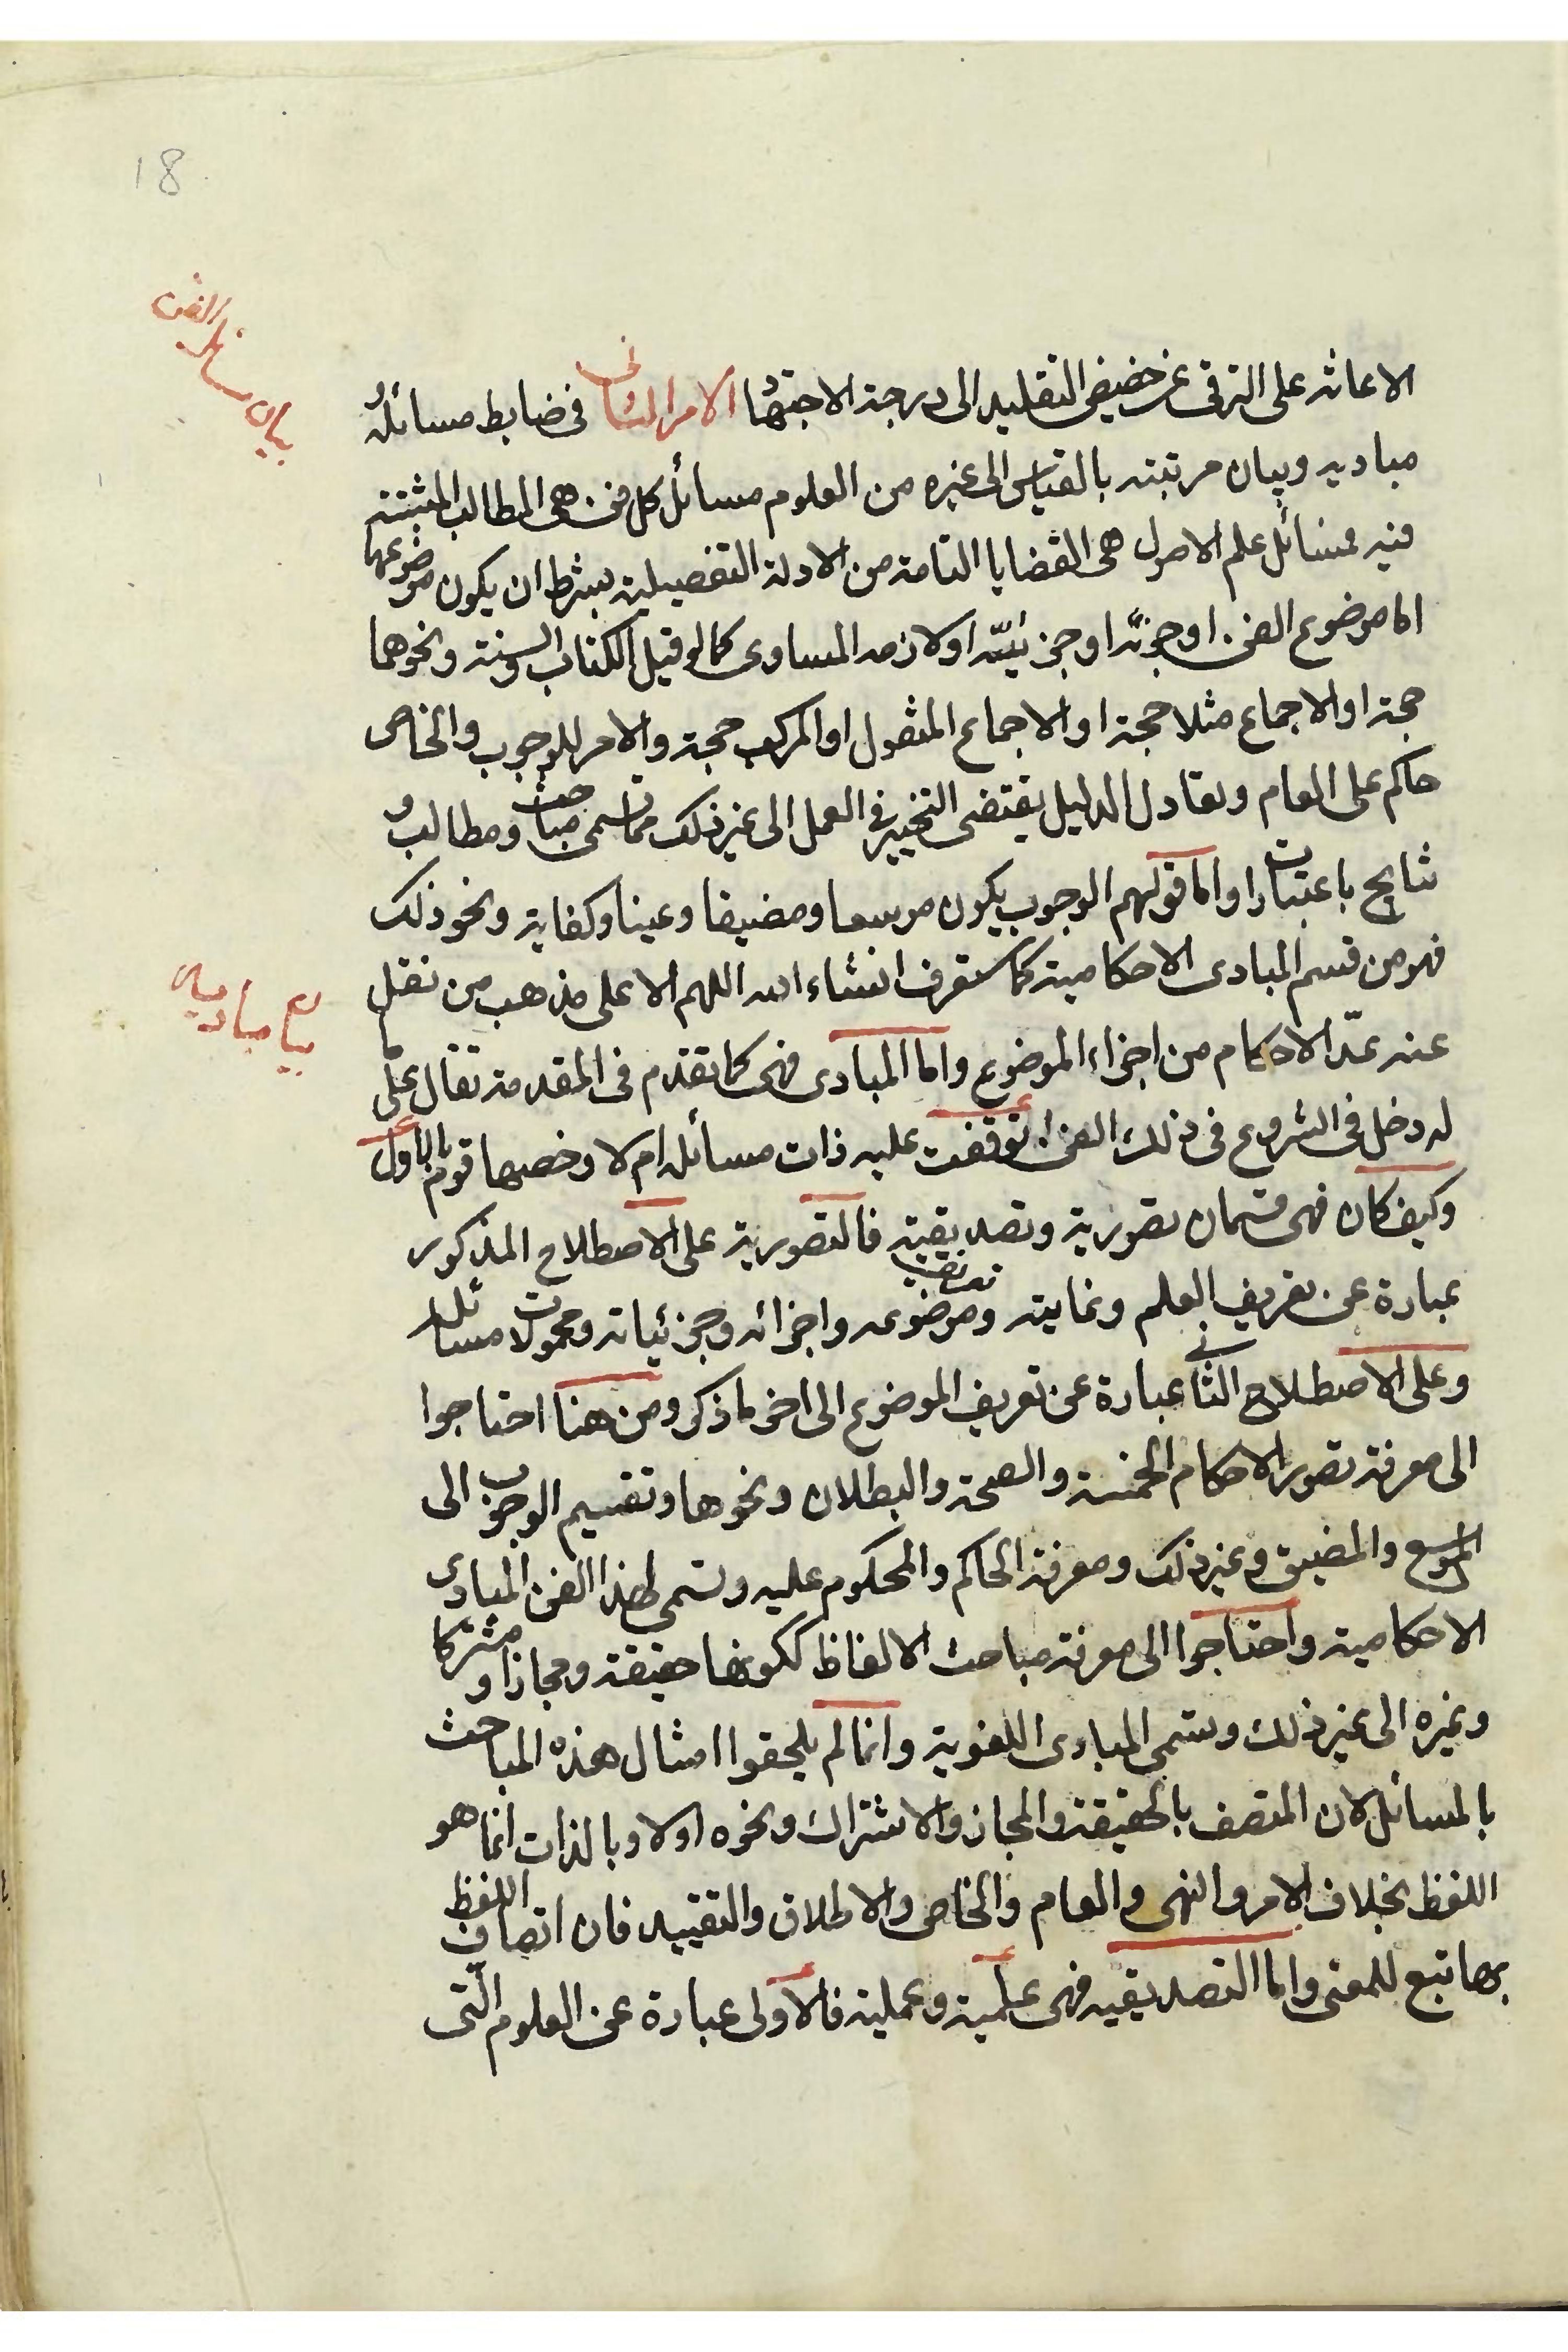 18
بيان مسائل الفن
الاعانة على الترقى عن حضيض التقليد الى درجة الاجتهاد الامر الثانى فى ضابط مسائله و
مباديه وبيان مرتبته بالقياس الى غيره من العلوم مسائل كل فن هى المطالب المثبتة
فيه فمسائل علم الاصول هى القضايا التامة من الادلة التفصيلية بشرط ان يكون موضوعها
اما موضوع الفن او جزئه او جزئيته او لازمه المساوى كما لو قيل الكتاب والسنة ونحوهما
حجة او الاجماع مثلا حجة او الاجماع المنقول او المركب حجة والامر للوجوب والخاص
حاكم على العام وتعادل الدليل يقتضى التخيير فى العمل الى غير ذلك مما تسمى مباحث ومطالب و
نتايج باعتبارات واما قولهم الوجوب يكون موسعا ومضيقا وعينا وكفاية ونحو ذلك
فهو من قسم المبادى الاحكامية كما ستعرف انشاء الله اللهم الا على مذهب من نقل
بيان مباديه
عنه عدّ الاحكام من اجزاء الموضوع واما المبادى فهى كما تقدم فى المقدمة تقال على ما
له دخل فى الشروع فى ذلك الفن توقفت عليه ذات مسائله ام لا وخصها قوم بالاول
وكيف كان فهى قسمان تصورية وتصديقية فالتصورية على الاصطلاح المذكور
عبارة عن تعريف العلم وغايته وموضوعه واجزائه وجزئياته ومحمولات مسائله
وعلى الاصطلاح الثانى عبارة عن تعريف الموضوع الى اخر ما ذكر ومن هنا احتاجوا
الى معرفة تصور الاحكام الخمسة والصحة والبطلان ونحوها وتقسيم الوجوب الى
الموسع والمضيق وغير ذلك ومعرفة الحاكم والمحكوم عليه وتسمى لهذا الفن المبادى
الاحكامية واحتاجوا الى معرفة مباحث الالفاظ ككونها حقيقة ومجازا ومشتركا
وغيره الى غير ذلك وتسمى المبادى اللغوية وانما لم يلحقوا امثال هذه المباحث
بالمسائل لان المتصف بالحقيقة والمجاز والاشتراك ونحوه اولا وبالذات انما هو
اللفظ بخلاف الامر والنهى والعام والخاص والاطلاق والتقييد فان اتصاف اللفظ
بها تبع للمعنى واما التصديقيه فهى علمية وعملية فالاولى عبارة عن العلوم التى